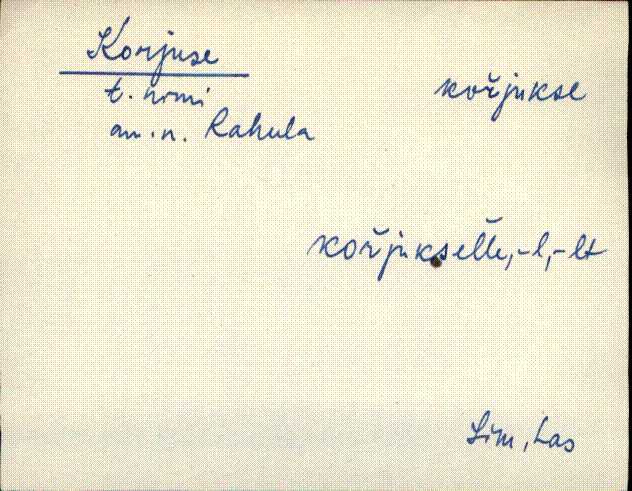 Korjuse
t. nimi
am. n. Rahula
kořjukse
kořjuksel̆l̆e, -l, -lt
Lim, Las